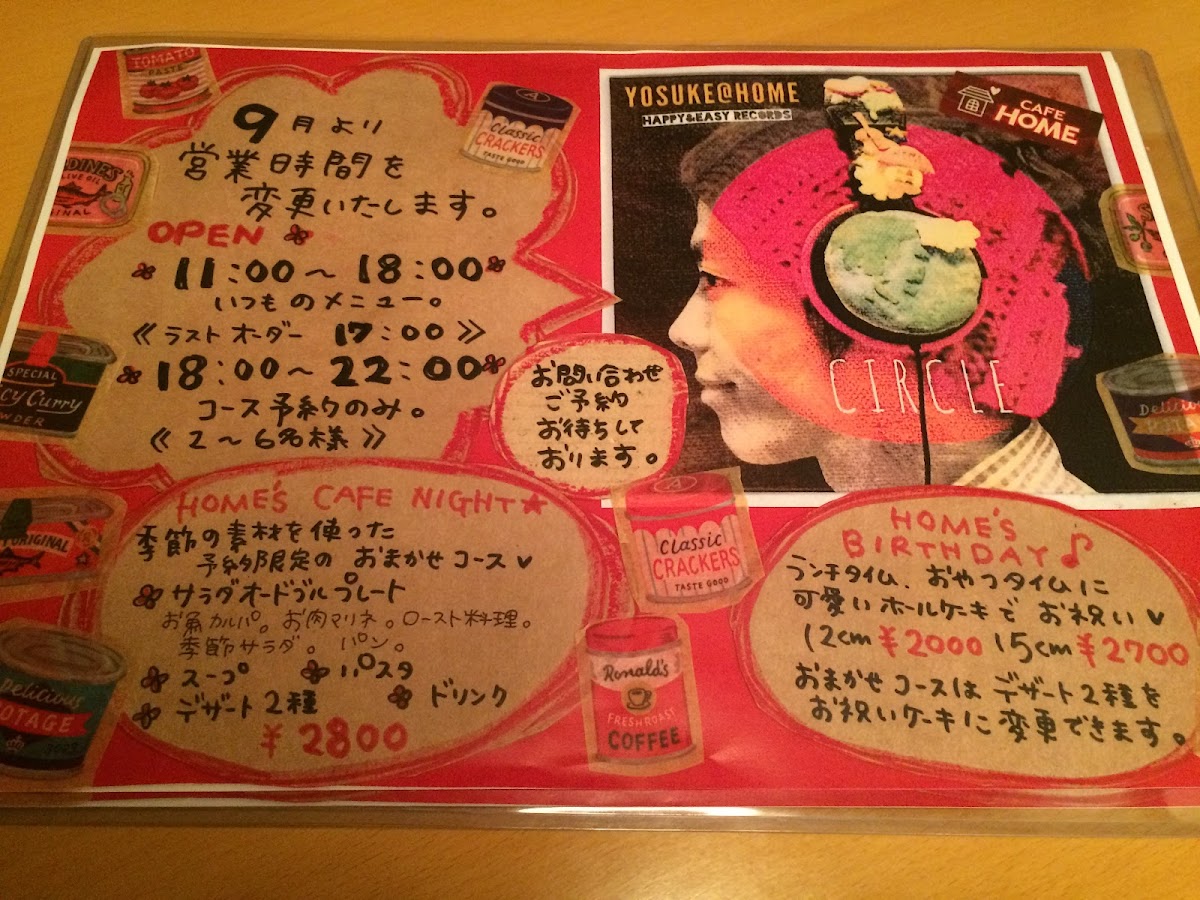 TOMATO
PASTE
9月より
営業時間を
変更いたします。
OPEN
11:00～18:00
いつものメニュー。
《ラストオーダー 17:00》
18:00～22:00
コース予約のみ。
《2～6名様》
Classic
CRACKERS
TASTE GOOD
DINES
OLIVE OIL
INAL
SPECIAL
CY CURRY
WDER
お問い合わせ
ご予約
お待ちして
おります。
YOSUKE@HOME
HAPPY&EASY RECORDS
CAFE
HOME
CIRCLE
HOME'S CAFE NIGHT★
季節の素材を使った
予約限定の おまかせコース
サラダオードブルプレート
お魚カルパ。お肉マリネ。ロースト料理。
季節サラダ。パン。
スープ パスタ
デザート2種 ドリンク
¥2800
ORIGINAL
Delicious
OTAGE
Classic
CRACKERS
TASTE GOOD
Ronald's
FRESH ROAST
COFFEE
HOME'S
BIRTHDAY♪
ランチタイム、おやつタイムに
可愛いホールケーキで お祝い♥
12cm ¥2000 15cm ¥2700
おまかせコースは デザート2種を
お祝いケーキに変更できます。